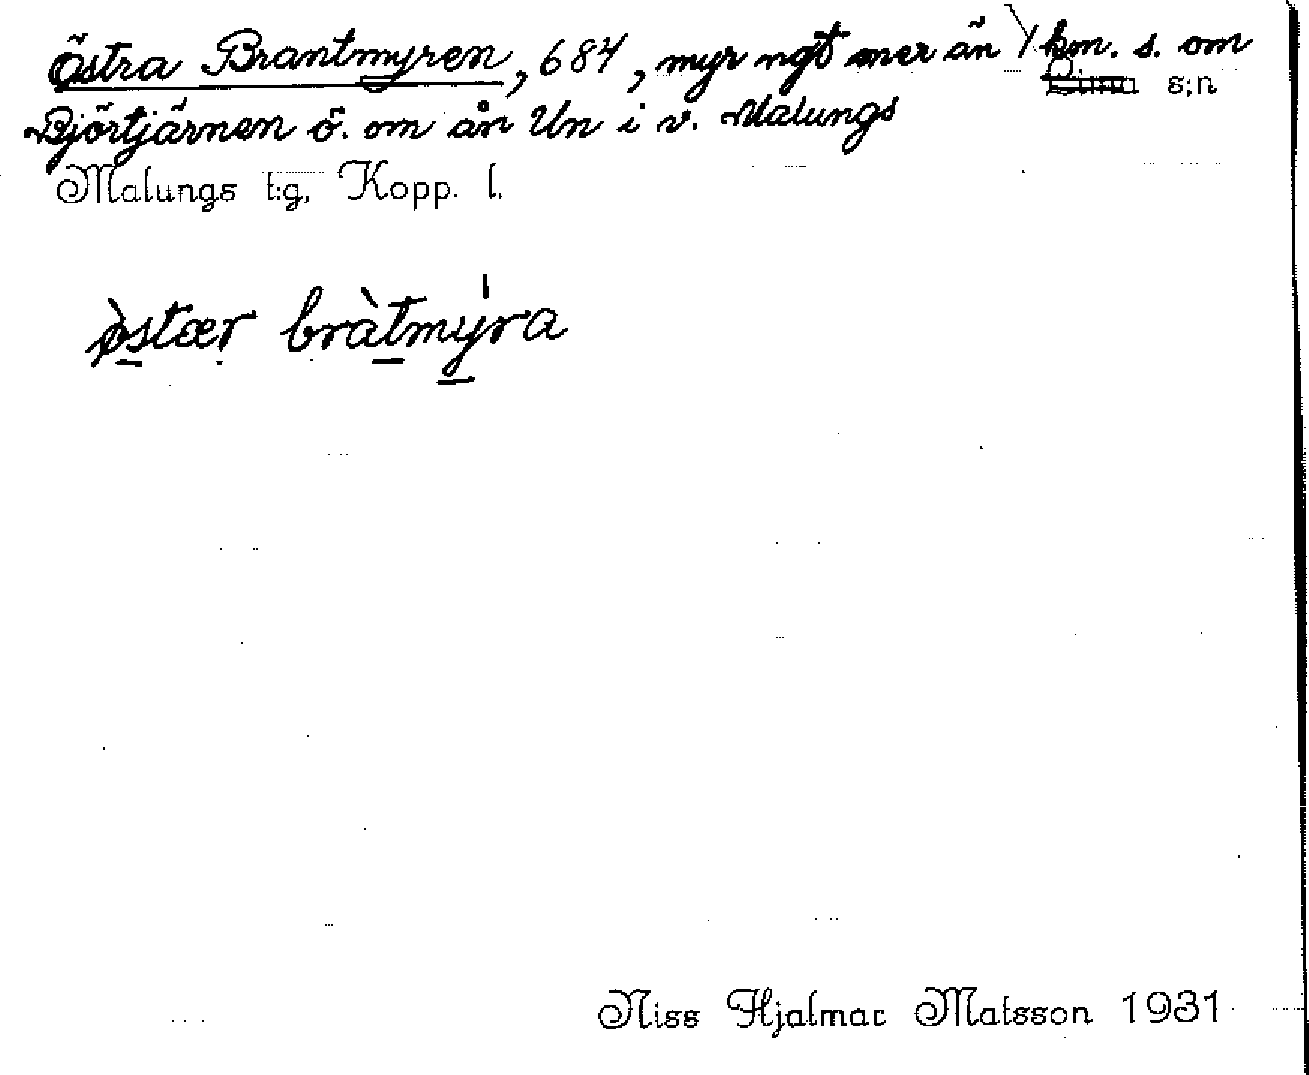 Östra Brantmyren, 684, myr ngt mer än 1 km. s. om
s:n
Björtjärnen ö. om ån Un i v. Malungs
Malungs t:g, Kopp. l.
østær bràtmýra
Niss Hjalmar Matsson 1931